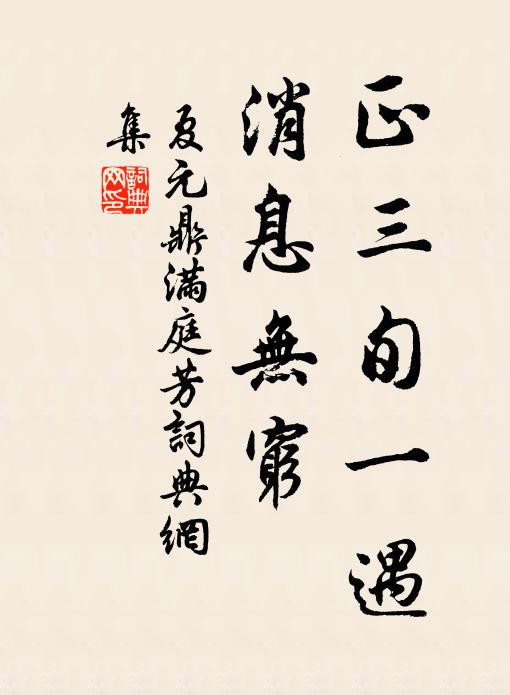 正三旬一遇
消息無窮
夏元鼎滿庭芳詞典網
集
詞典
网印